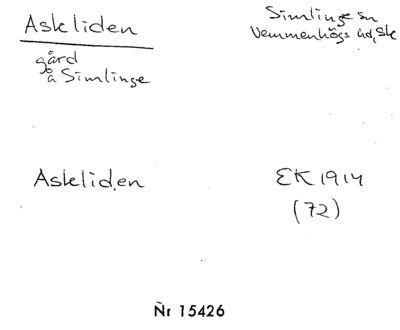 Askliden
Simlinge sn
Vemmenhögs hd, Sk
gård
å Simlinge
Askliden
EK 1914
(72)
Nr 15426